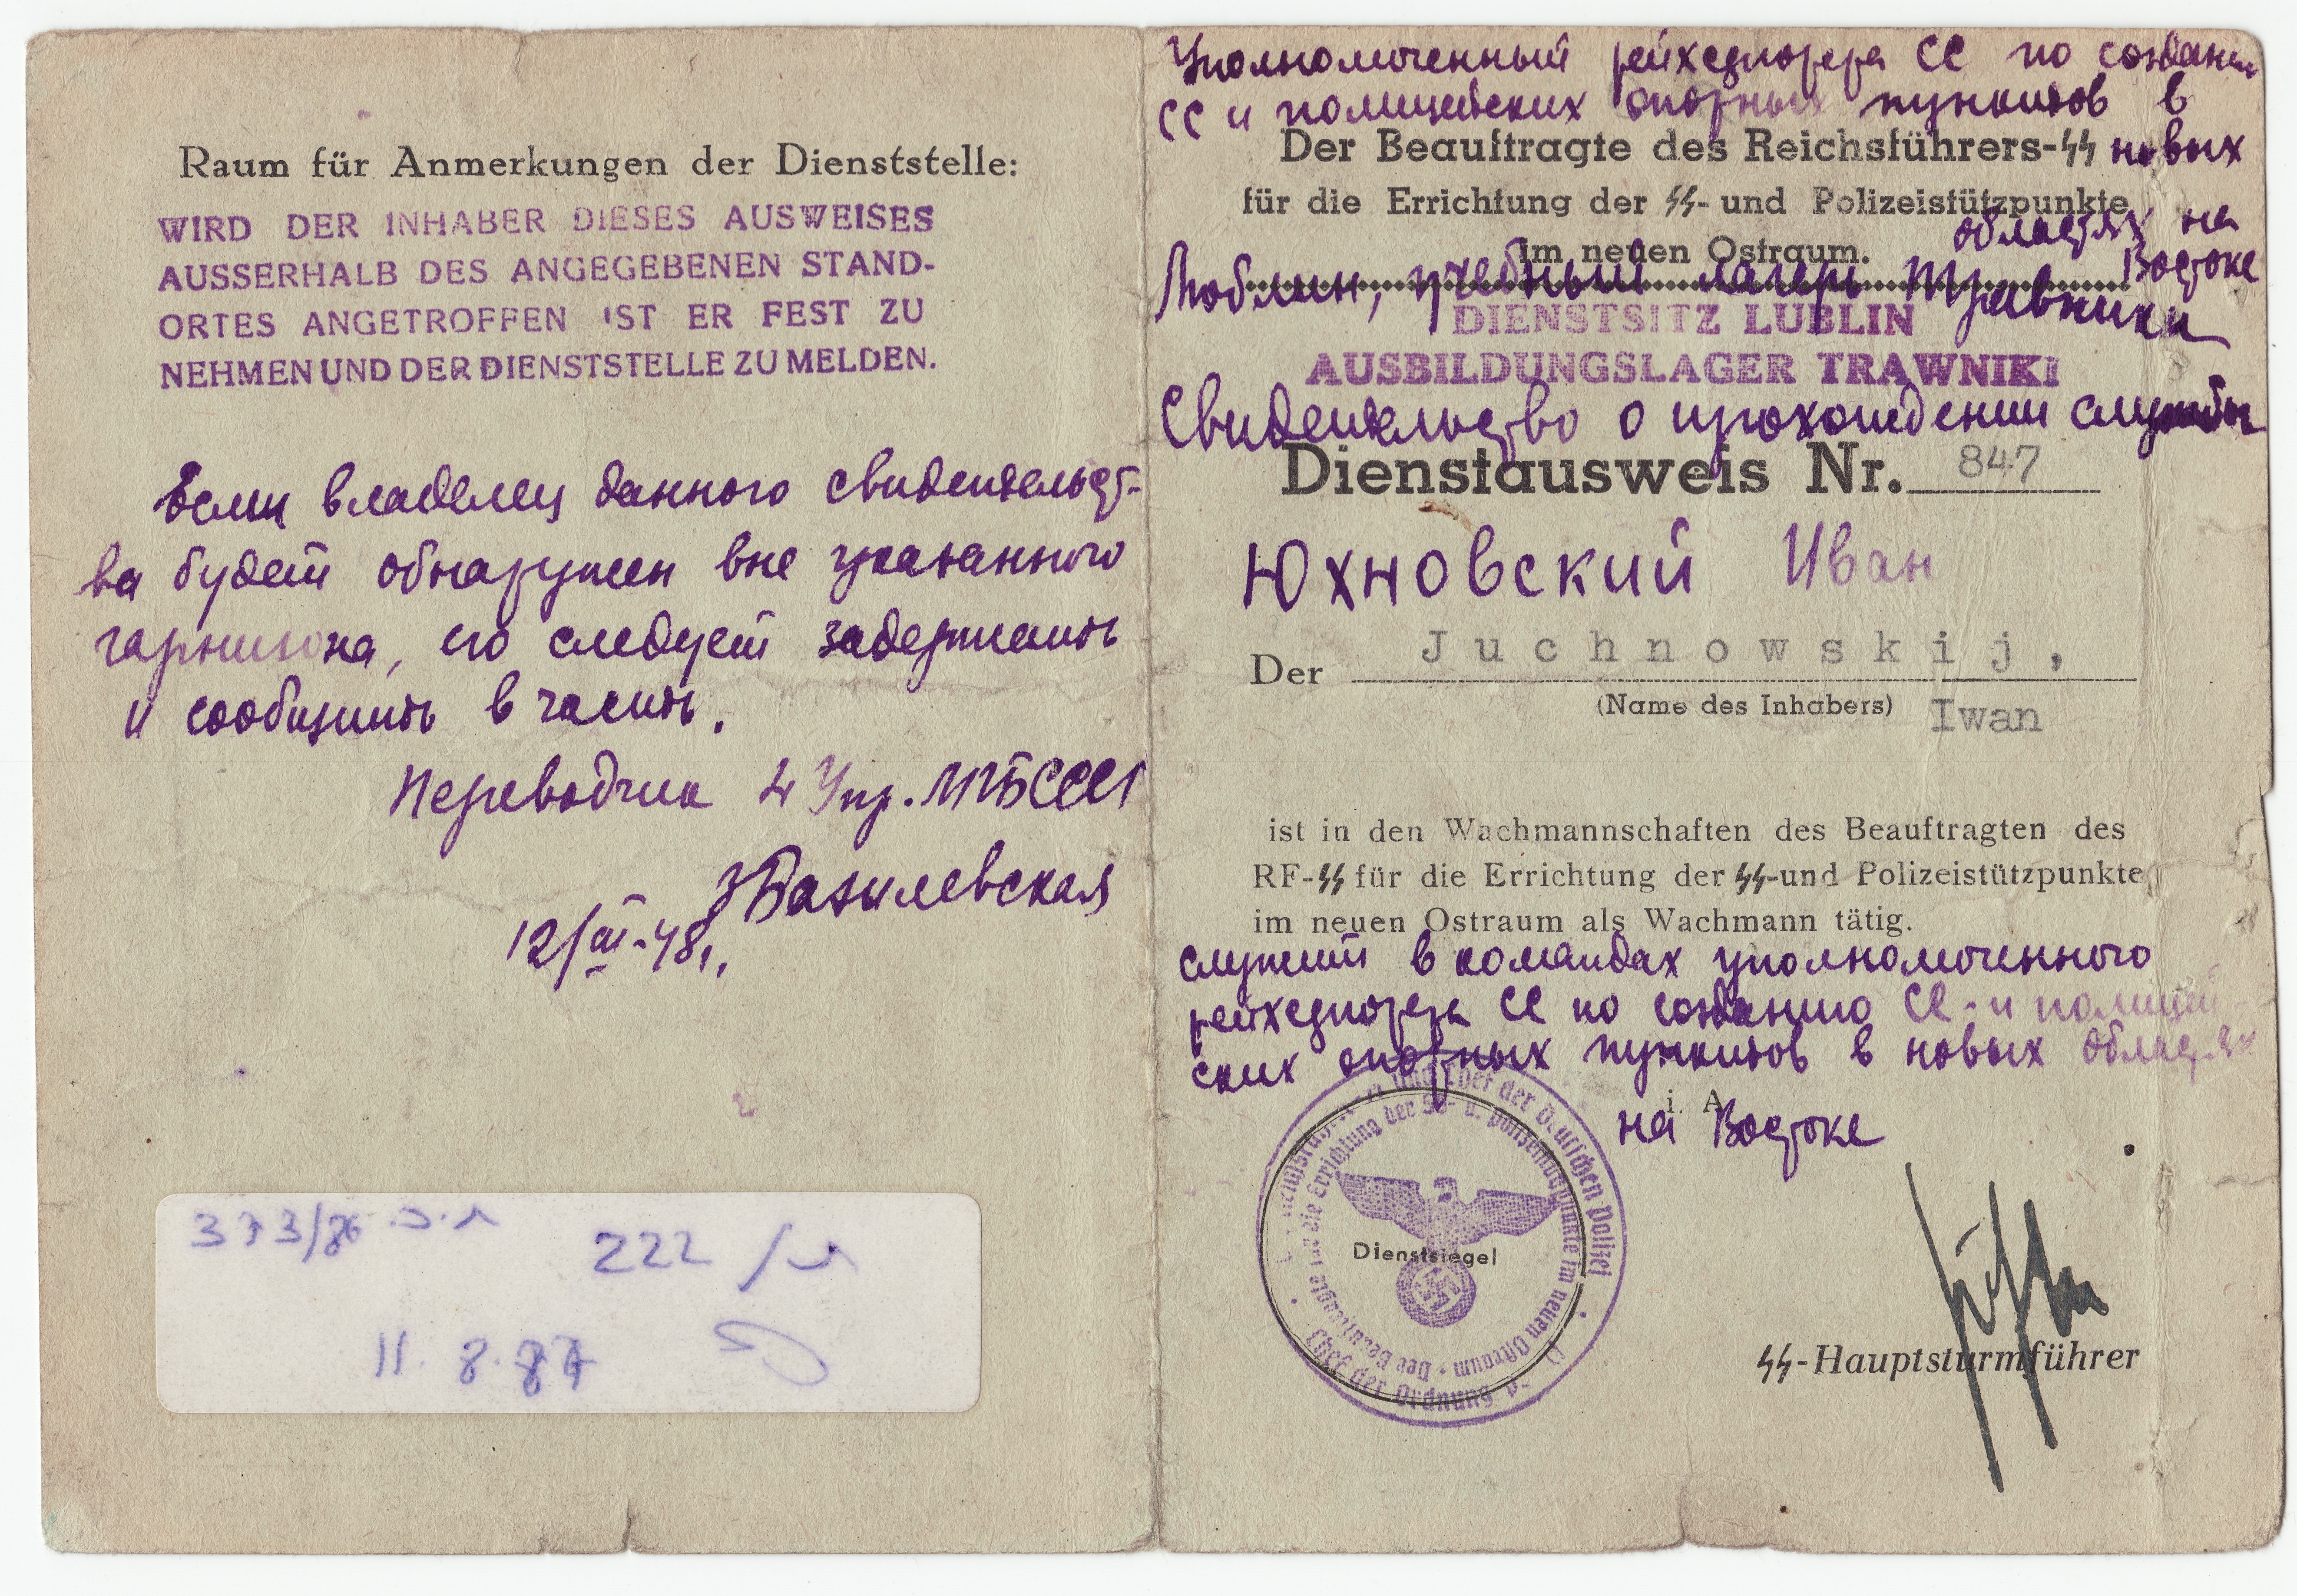 Raum für Anmerkungen der Dienststelle:
WIRD DER INHABER DIESES AUSWEISES
AUSSERHALB DES ANGEGEBENEN STAND-
ORTES ANGETROFFEN IST ER FEST ZU
NEHMEN UND DER DIENSTSTELLE ZU MELDEN.
Если владелец данного свидетельст-
ва будет обнаружен вне указанного
гарнизона, его следует задержать
и сообщить в часть.
Переводчик 4 Упр. МГБ СССР
Базилевская
12/III-48г.
373/86
222
11.8.87
Уполномоченный рейхсфюрера СС по создани
СС и полицейских опорных пунктов в
Der Beauftragte des Reichsführers-SS новых
für die Errichtung der SS- und Polizeistützpunkte
областях на
im neuen Ostraum.
Востоке
Люблин, учебный лагерь Травники
DIENSTSITZ LUBLIN
AUSBILDUNGSLAGER TRAWNIKI
Свидетельство о прохождении службы
Dienstausweis Nr. 847
Юхновский Иван
Der Juchnowskij,
(Name des Inhabers) Iwan
ist in den Wachmannschaften des Beauftragten des
RF-SS für die Errichtung der SS-und Polizeistützpunkte
im neuen Ostraum als Wachmann tätig.
служит в командах уполномоченного
рейхсфюрера СС по созданию СС-и полицей
ских опорных пунктов в новых областях
i. A.
на Востоке
Chef der Deutschen Polizei
Chef der Ordnung
Der Beauftragte für die Errichtung der SS- u. Polizeistützpunkte im neuen Ostraum
Dienstsiegel
SS-Hauptsturmführer